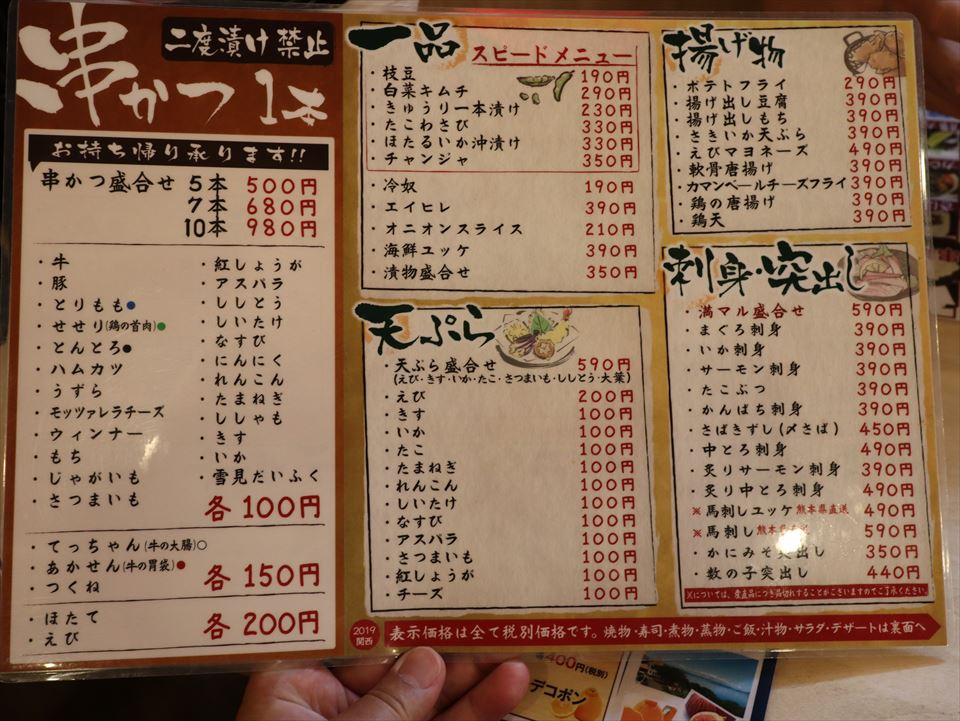 串かつ 1本
二度漬け禁止
お持ち帰り承ります!!
串かつ盛合せ 5本 500円
7本 680円
10本 980円
・牛
・豚
・とりもも●
・せせり(鶏の首肉)●
・とんとろ●
・ハムカツ
・うずら
・モッツァレラチーズ
・ウィンナー
・もち
・じゃがいも
・さつまいも
・紅しょうが
・アスパラ
・ししとう
・しいたけ
・なすび
・にんにく
・れんこん
・たまねぎ
・ししゃも
・きす
・いか
・雪見だいふく
各100円
・てっちゃん(牛の大腸)○
・あかせん(牛の胃袋)●
・つくね
各150円
・ほたて
・えび
各200円
一品
スピードメニュー
・枝豆 190円
・白菜キムチ 290円
・きゅうり一本漬け 230円
・たこわさび 330円
・ほたるいか沖漬け 330円
・チャンジャ 350円
・冷奴 190円
・エイヒレ 390円
・オニオンスライス 210円
・海鮮ユッケ 390円
・漬物盛合せ 350円
天ぷら
・天ぷら盛合せ 590円
(えび・きす・いか・たこ・さつまいも・ししとう・大葉)
・えび 200円
・きす 100円
・いか 100円
・たこ 100円
・たまねぎ 100円
・れんこん 100円
・しいたけ 100円
・なすび 100円
・アスパラ 100円
・さつまいも 100円
・紅しょうが 100円
・チーズ 100円
揚げ物
・ポテトフライ 290円
・揚げ出し豆腐 390円
・揚げ出しもち 390円
・さきいか天ぷら 390円
・えびマヨネーズ 490円
・軟骨唐揚げ 390円
・カマンベールチーズフライ 390円
・鶏の唐揚げ 390円
・鶏天 390円
刺身・突出し
・満マル盛合せ 590円
・まぐろ刺身 390円
・いか刺身 390円
・サーモン刺身 390円
・たこぶつ 390円
・かんぱち刺身 390円
・さばきずし(〆さば) 450円
・中とろ刺身 490円
・炙りサーモン刺身 390円
・炙り中とろ刺身 490円
※馬刺しユッケ 熊本県直送 490円
※馬刺し 熊本 590円
・かにみそ突出し 350円
・数の子突出し 440円
※については、産直品につき品切れすることがございますのでご了承ください。
2019
関西
表示価格は全て税別価格です。焼物・寿司・煮物・蒸物・ご飯・汁物・サラダ・デザートは裏面へ
400円(税別)
デコポン